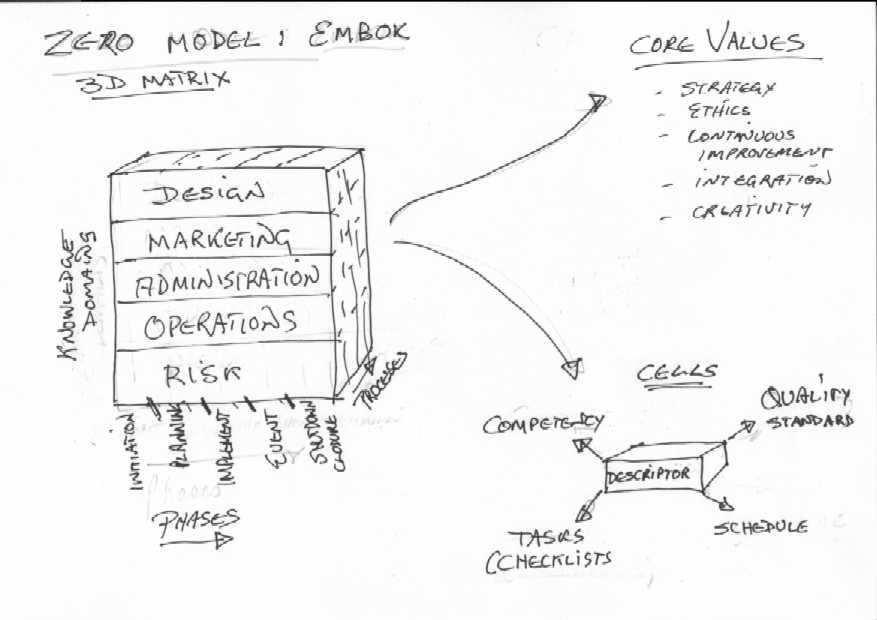 ZERO MODEL: EMBOK
3D MATRIX
CORE VALUES
- STRATEGY
- ETHICS
- CONTINUOUS
IMPROVEMENT
- INTEGRATION
- CREATIVITY
KNOWLEDGE
DOMAINS
DESIGN
MARKETING
ADMINISTRATION
OPERATIONS
RISK
PROCESSES
INITIATION
PLANNING
IMPLEMENT
EVENT
SHUTDOWN
CLOSURE
PHASES
CELLS
COMPETENCY
QUALITY
STANDARD
DESCRIPTOR
TASKS
(CHECKLISTS
SCHEDULE